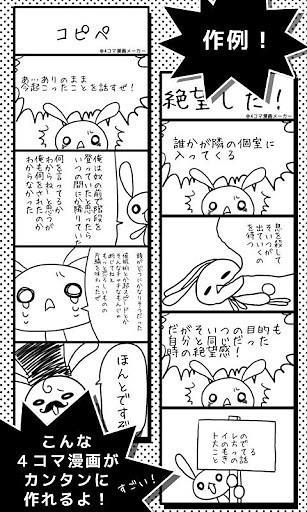 作例!
コピペ
@4コマ漫画メーカー
あ…ありのまま
今起こったことを話すぜ!
俺は奴の前で階段を
登っていたと思ったら
いつの間にか降りていた
何を言ってるか
わからねーと思うが
俺も何をされたのか
わからなかった
頭がどうにかなりそうだった
そんなチャチなもんじゃ
断じてねぇ
もっと恐ろしいものの
片鱗を味わったぜ
ほんとですぞ
絶望した!
@4コマ漫画メーカー
誰かが隣の個室に
入ってくる
息を殺して
そいつが
出ていくの
を待つ
だがそいつの目的も
同じだった
時の絶望感!
こんな
4コマ漫画が
カンタンに
作れるよ!
すごい!